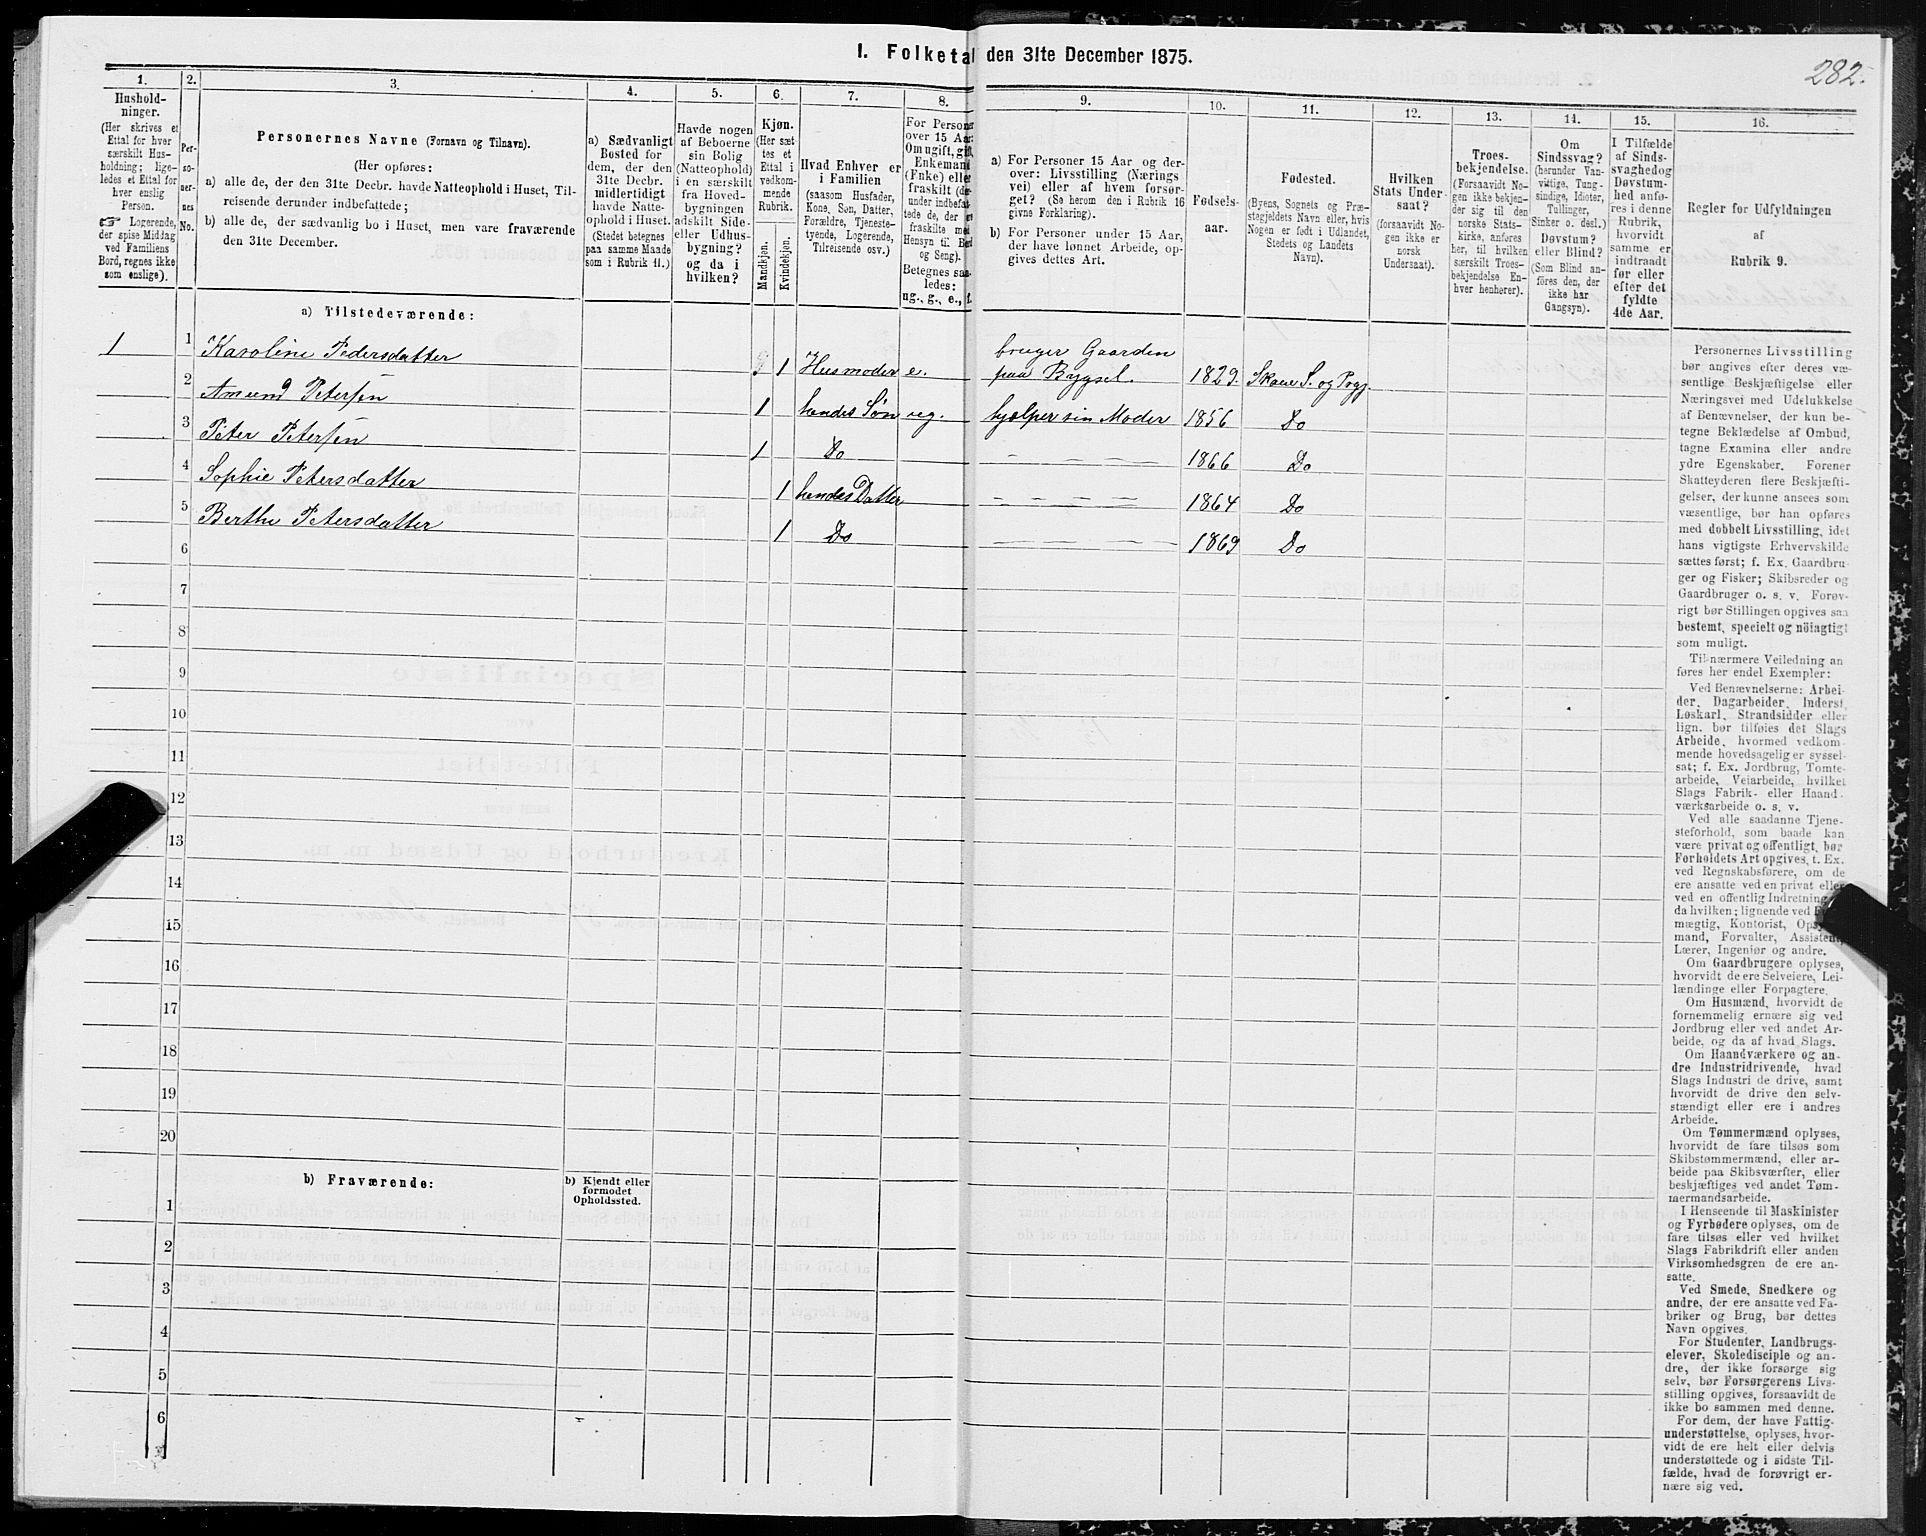 I. Folketal den 31te December 1875.
282.
1.
Hushold-
ninger.
(Her skrives et
Ettal for hver
særskilt Hus-
holdning; lige-
ledes et Ettal for
hver enslig
Person.
☞ Logerende,
der spise Middag
ved Familiens
Bord, regnes ikke
som enslige).
2.
Per-
so-
ner-
nes
No.
3.
Personernes Navne (Fornavn og Tilnavn).
(Her opføres:
a) alle de, der den 31te Decbr. havde Natteophold i Huset, Til-
reisende derunder indbefattede;
b) alle de, der sædvanlig bo i Huset, men vare fraværende
den 31te December.
4.
a) Sædvanligt
Bosted for
dem, der den
31te Decbr.
midlertidigt
havde Natte-
ophold i Huset.
(Stedet betegnes
paa samme Maade
som i Rubrik 11.)
5.
Havde nogen
af Beboerne
sin Bolig
(Natteophold)
i en særskilt
fra Hoved-
bygningen
adskilt Side-
eller Udhus-
bygning?
og da i
hvilken?
6.
Kjøn.
(Her sæt
tes et
Ettal i
vedkom-
mende
Rubrik.
Mandkjøn.
Kvindekjøn.
7.
Hvad Enhver er
i Familien
(saasom Husfader,
Kone, Søn, Datter,
Forældre, Tjeneste-
tyende, Logerende,
Tilreisende osv.)
8.
For Persone
over 15 Aar:
Om ugift, gift,
Enkemand
(Enke) elle
fraskilt (de
under indbefat
tede de, der e
fraskilte med
Hensyn til Bord
og Seng).
Betegnes saa
ledes:
ug., g., e., f.
9.
a) For Personer 15 Aar og der-
over: Livsstilling (Nærings
vei) eller af hvem forsør-
get? (Se herom den i Rubrik 16
givne Forklaring).
b) For Personer under 15 Aar,
der have lønnet Arbeide, op-
gives dettes Art.
10.
Fødsels-
aar.
11.
Fødested.
(Byens, Sognets og Præ-
stegjeldets Navn eller, hvis
Nogen er født i Udlandet,
Stedets og Landets
Navn).
12.
Hvilken
Stats Under-
saat?
(forsaavidt No-
gen ikke er
norsk
Undersaat).
13.
Troes-
bekjendelse.
(Forsaavidt No-
gen ikke bekjen-
der sig til den
norske Stats-
kirke, anføres
her, til hvilken
særskilt Troes-
bekjendelse En-
hver henhører).
14.
Om
Sindssvag?
(herunder Van-
vittige, Tung-
sindige, Idioter,
Tullinger,
Sinker o. desl.)
Døvstum?
eller Blind?
(Som Blind an-
føres den, der
ikke har
Gangsyn).
15.
I Tilfælde
af Sinds-
svaghed og
Døvstum-
hed anfø-
res i denne
Rubrik,
hvorvidt
samme er
indtraadt
før eller
efter det
fyldte
4de Aar.
16.
Regler for Udfyldningen
af
Rubrik 9.
a) Tilstedeværende:
1 1 Karoline Pedersdatter 1 Husmoder e. bruger Gaarden paa Bygsel. 1829. Skaue S. og Prgj.
2 Amund Petersen 1 hendes Søn ug. hjælper sin Moder 1856 Do
3 Peter Petersen 1 Do — — — — — 1866 Do
4 Sophie Petersdatter 1 hendes Datter — — — — — 1864 Do
5 Berthe Petersdatter 1 Do — — — — — 1869 Do
6
7
8
9
10
11
12
13
14
15
16
17
18
19
20
b) Fraværende:
b) Kjendt eller
formodet
Opholdssted.
1
2
3
4
5
6
Personernes Livsstilling
bør angives efter deres væ-
sentlige Beskjæftigelse eller
Næringsvei med Udelukkelse
af Benævnelser, der kun be-
tegne Beklædelse af Ombud,
tagne Examina eller andre
ydre Egenskaber. Forener
Skatteyderen flere Beskjæfti-
gelser, der kunne ansees som
væsentlige, bør han opføres
med dobbelt Livsstilling, idet
hans vigtigste Erhvervskilde
sættes først; f. Ex. Gaardbru-
ger og Fisker; Skibsreder og
Gaardbruger o. s. v. Forøv-
rigt bør Stillingen opgives saa
bestemt, specielt og nöiagtigt
som muligt.
Til nærmere Veiledning an
føres her endel Exempler:
Ved Benævnelserne: Arbei-
der, Dagarbeider, Inderst,
Løskarl, Strandsidder eller
lign. bør tilføies det Slags
Arbeide, hvormed vedkom-
mende hovedsagelig er syssel-
sat; f. Ex. Jordbrug, Tomte-
arbeide, Veiarbeide, hvilket
Slags Fabrik- eller Haand-
værksarbeide o. s. v.
Ved alle saadanne Tjene-
steforhold, som baade kan
være privat og offentligt, bør
Forholdets Art opgives, t. Ex.
ved Regnskabsførere, om de
ere ansatte ved en privat eller
ved en offentlig Indretning
da hvilken; lignende ved F
mægtig, Kontorist, Opsy
mand, Forvalter, Assistent,
Lærer, Ingeniør og andre.
Om Gaardbrugere oplyses,
hvorvidt de ere Selveiere, Lei-
lændinge eller Forpagtere.
Om Husmænd, hvorvidt de
fornemmelig ernære sig ved
Jordbrug eller ved andet Ar-
beide, og da af hvad Slags.
Om Haandværkere og an-
dre Industridrivende, hvad
Slags Industri de drive, samt
hvorvidt de drive den selv-
stændigt eller ere i andres
Arbeide.
Om Tømmermænd oplyses,
hvorvidt de fare tilsøs som
Skibstømmermænd, eller ar-
beide paa Skibsværfter, eller
beskjæftiges ved andet Tøm-
mermandsarbeide.
I Henseende til Maskinister
og Fyrbødere oplyses, om de
fare tilsøs eller ved hvilket
Slags Fabrikdrift eller anden
Virksomhedsgren de ere an-
satte.
Ved Smede, Snedkere og
andre, der ere ansatte ved Fa-
briker og Brug, bør dettes
Navn opgives.
For Studenter, Landbrugs-
elever, Skoledisciple og an-
dre, der ikke forsørge sig
selv, bør Forsørgerens Livs-
stilling opgives, forsaavidt de
ikke bo sammen med denne.
For dem, der have Fattig-
understøttelse, oplyses, hvor-
vidt de ere helt eller delvis
understøttede og i sidste Til-
fælde, hvad de forøvrigt er-
nære sig ved.